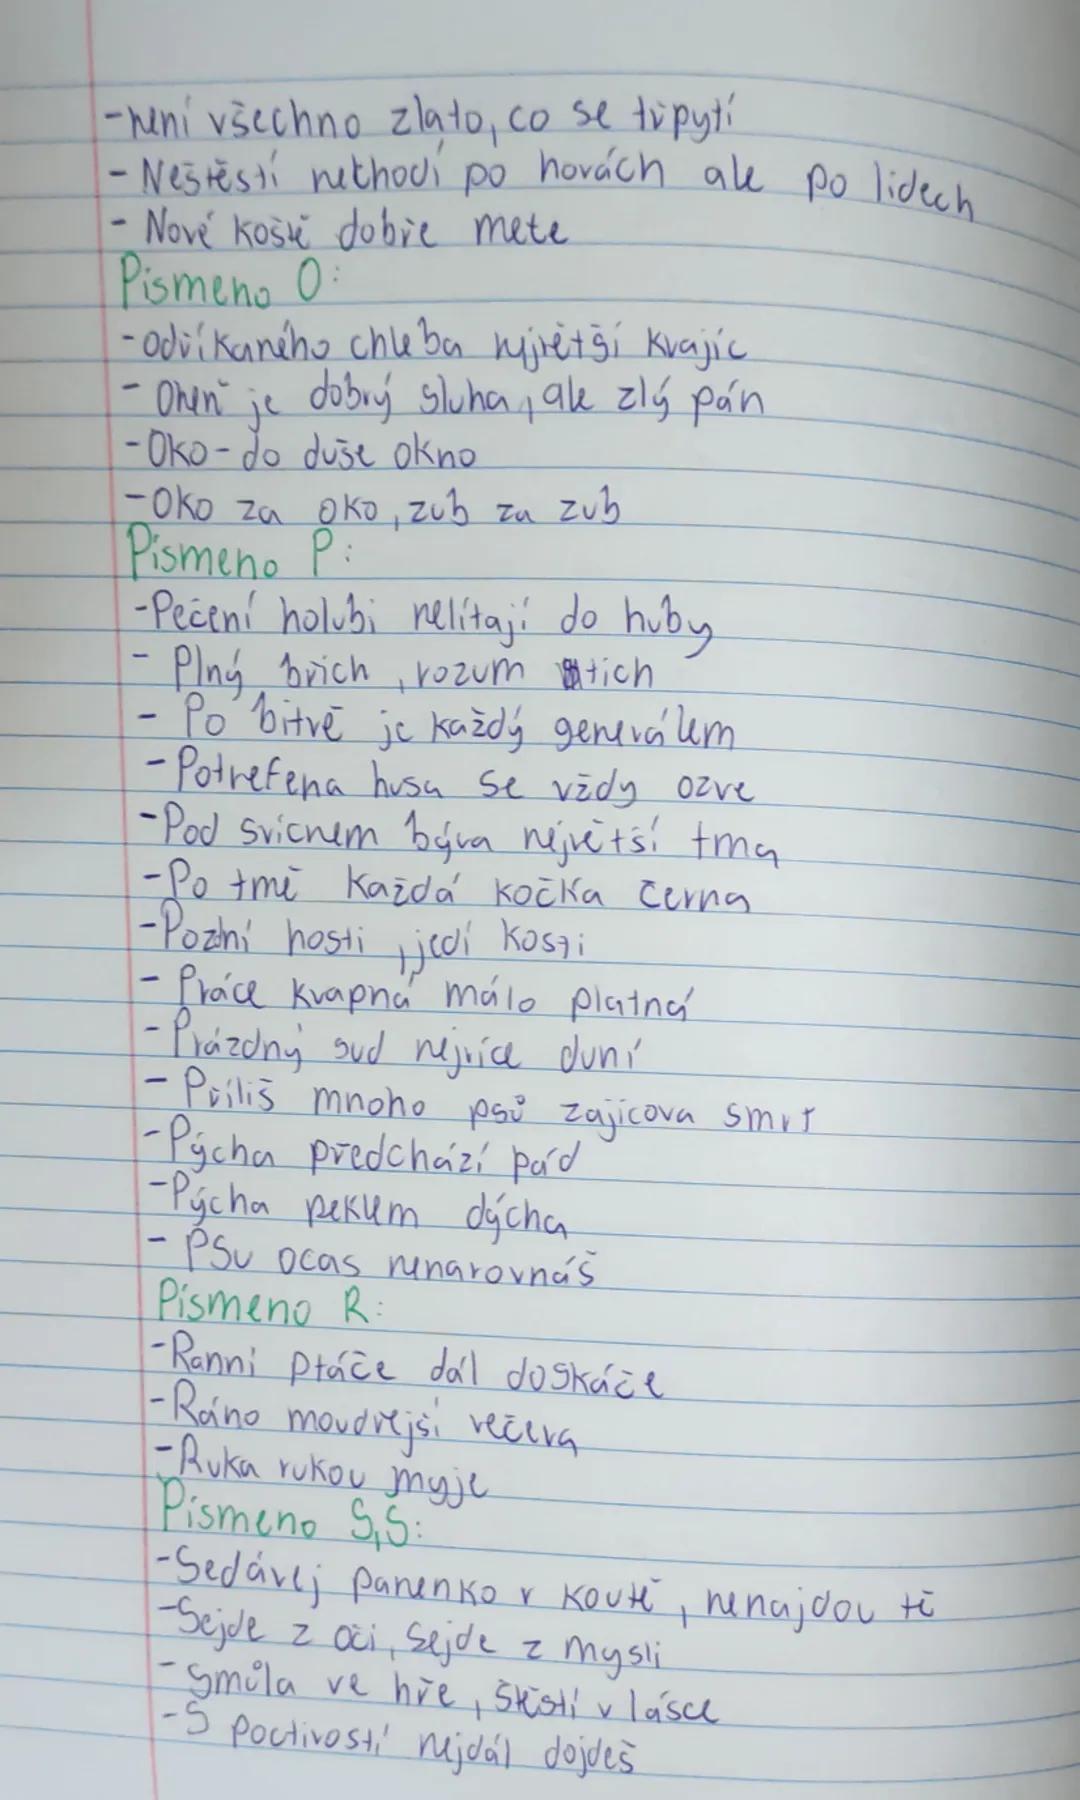 -není všechno zlato, co se třpytí
- Neštěstí nechodí po horách ale po lidech
- Nové koště dobře mete
Písmeno O:
-odříkaného chleba největší krajíc
- Oheň je dobrý sluha, ale zlý pán
-Oko-do duše okno
-Oko za oko, zub za zub
Písmeno P:
-Pečení holubi nelítají do huby
- Plný břich, rozum tich
- Po bitvě je každý generálem
-Potrefena husa se vždy ozve
-Pod svicnem býva největší tma
-Po tmě každá kočka černa
-Pozní hosti, jedí kosti
- Práce kvapná málo platná
-Prázdný sud nejvíce duní
- Příliš mnoho psů zajícova smrt
-Pýcha předchází pád
-Pýcha peklem dýcha
- PSu ocas nenarovnáš
Písmeno R:
-Ranni ptáče dál doskáče
-Ráno moudřejší večera
-Ruka rukou myje
Písmeno S,S:
-Sedávej panenko v koutě, nenajdou tě
-Sejde z oči, sejde z mysli
-Smůla ve hře, štěstí v lásce
-S poctivostí nejdál dojdeš